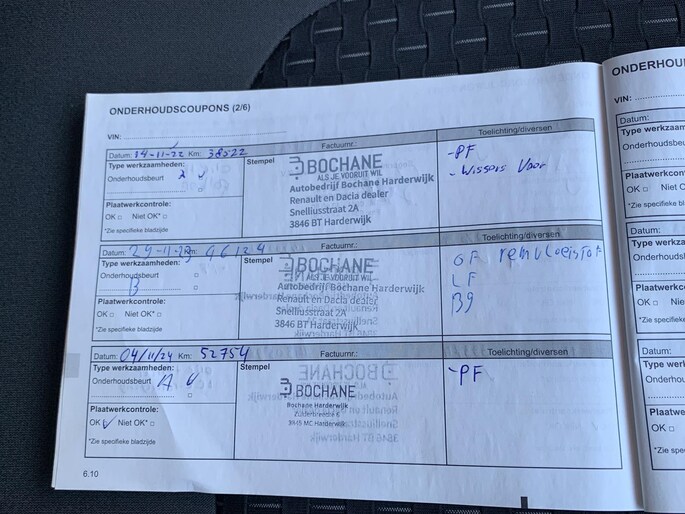 ONDERHOUDSCOUPONS (2/6)
VIN:
Datum: 14-11-22 Km: 38522
Factuurnr.:
Toelichting/diversen
Type werkzaamheden:
Onderhoudsbeurt A
Plaatwerkcontrole:
OK □ Niet OK* □
*Zie specifieke bladzijde
Stempel
BOCHANE
ALS JE VOORUIT WIL
Autobedrijf Bochane Harderwijk
Renault en Dacia dealer
Snelliusstraat 2A
3846 BT Harderwijk
-PF
- Wissers Voor
Datum: 29-11-23 Km:
Factuurnr.:
Toelichting/diversen
Type werkzaamheden:
Onderhoudsbeurt
B
Plaatwerkcontrole:
OK □ Niet OK* □
*Zie specifieke bladzijde
Stempel
BOCHANE
ALS JE VOORUIT WIL
Autobedrijf Bochane Harderwijk
Renault en Dacia dealer
Snelliusstraat 2A
3846 BT Harderwijk
remvloeistof
LF
Datum: 04/11/24 Km: 52754
Factuurnr.:
Toelichting/diversen
Type werkzaamheden:
Onderhoudsbeurt A
Plaatwerkcontrole:
OK Niet OK* □
*Zie specifieke bladzijde
Stempel
BOCHANE
Bochane Harderwijk
Zuiderbreedte 6
3845 MC Harderwijk
-PF
6.10
ONDERHOU
VIN:
Datum:
Type werk
Onderhoud
Plaatwerk
OK □ Nie
*Zie specifie
Datum:
Type wer
Onderhou
Plaatwer
OK □ N
*Zie spec
Datum:
Type we
Onderho
Plaatwe
OK □
*Zie spe